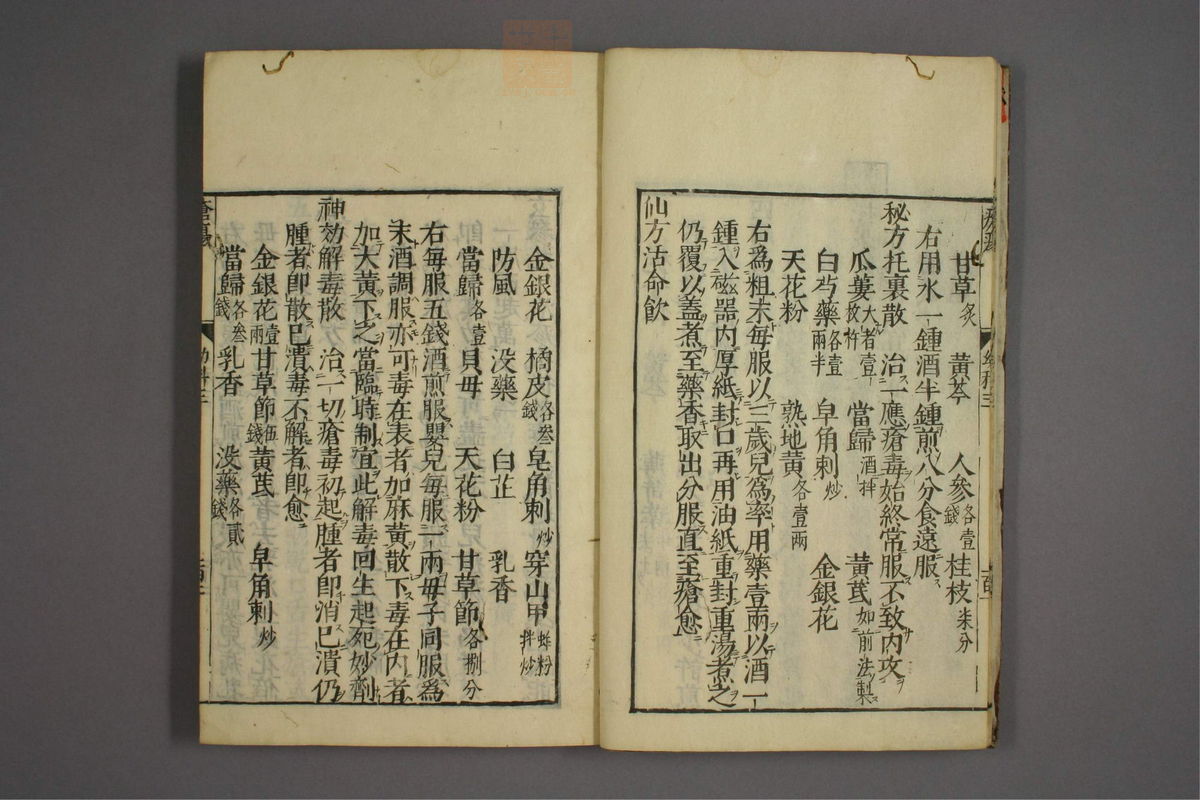 甘草炙 黄芩 人參各壹錢 桂枝柒分
右用水一鍾酒半鍾煎八分食遠服
秘方托裏散 治一應瘡毒始終常服不致内攻
瓜蔞大者壹枚杵 當歸酒拌 黄芪如前法製
白芍藥各壹兩半 皁角刺炒 金銀花
天花粉 熟地黄各壹兩
右爲粗末毎服以三歲兒爲率用藥壹兩以酒一
鍾入磁器内厚紙封口再用油紙重封重湯煮之
仍覆以蓋煮至藥香取出分服直至瘡愈
仙方活命飲
金銀花 橘皮各叁錢 皂角刺炒 穿山甲蛤粉拌炒
防風 没藥 白芷 乳香
當歸各壹錢 貝母 天花粉 甘草節各捌分
右毎服五錢酒煎服嬰兒毎服一兩母子同服爲
末酒調服亦可毒在表者加麻黄散下毒在内者
加大黄下之當臨時制宜此解毒回生起死妙劑
神効解毒散 治一切瘡毒初起腫者即消已潰仍
腫者即散已潰毒不解者即愈
金銀花壹兩 甘草節伍錢 黄芪 皁角刺炒
當歸各叁錢 乳香 没藥各貳錢